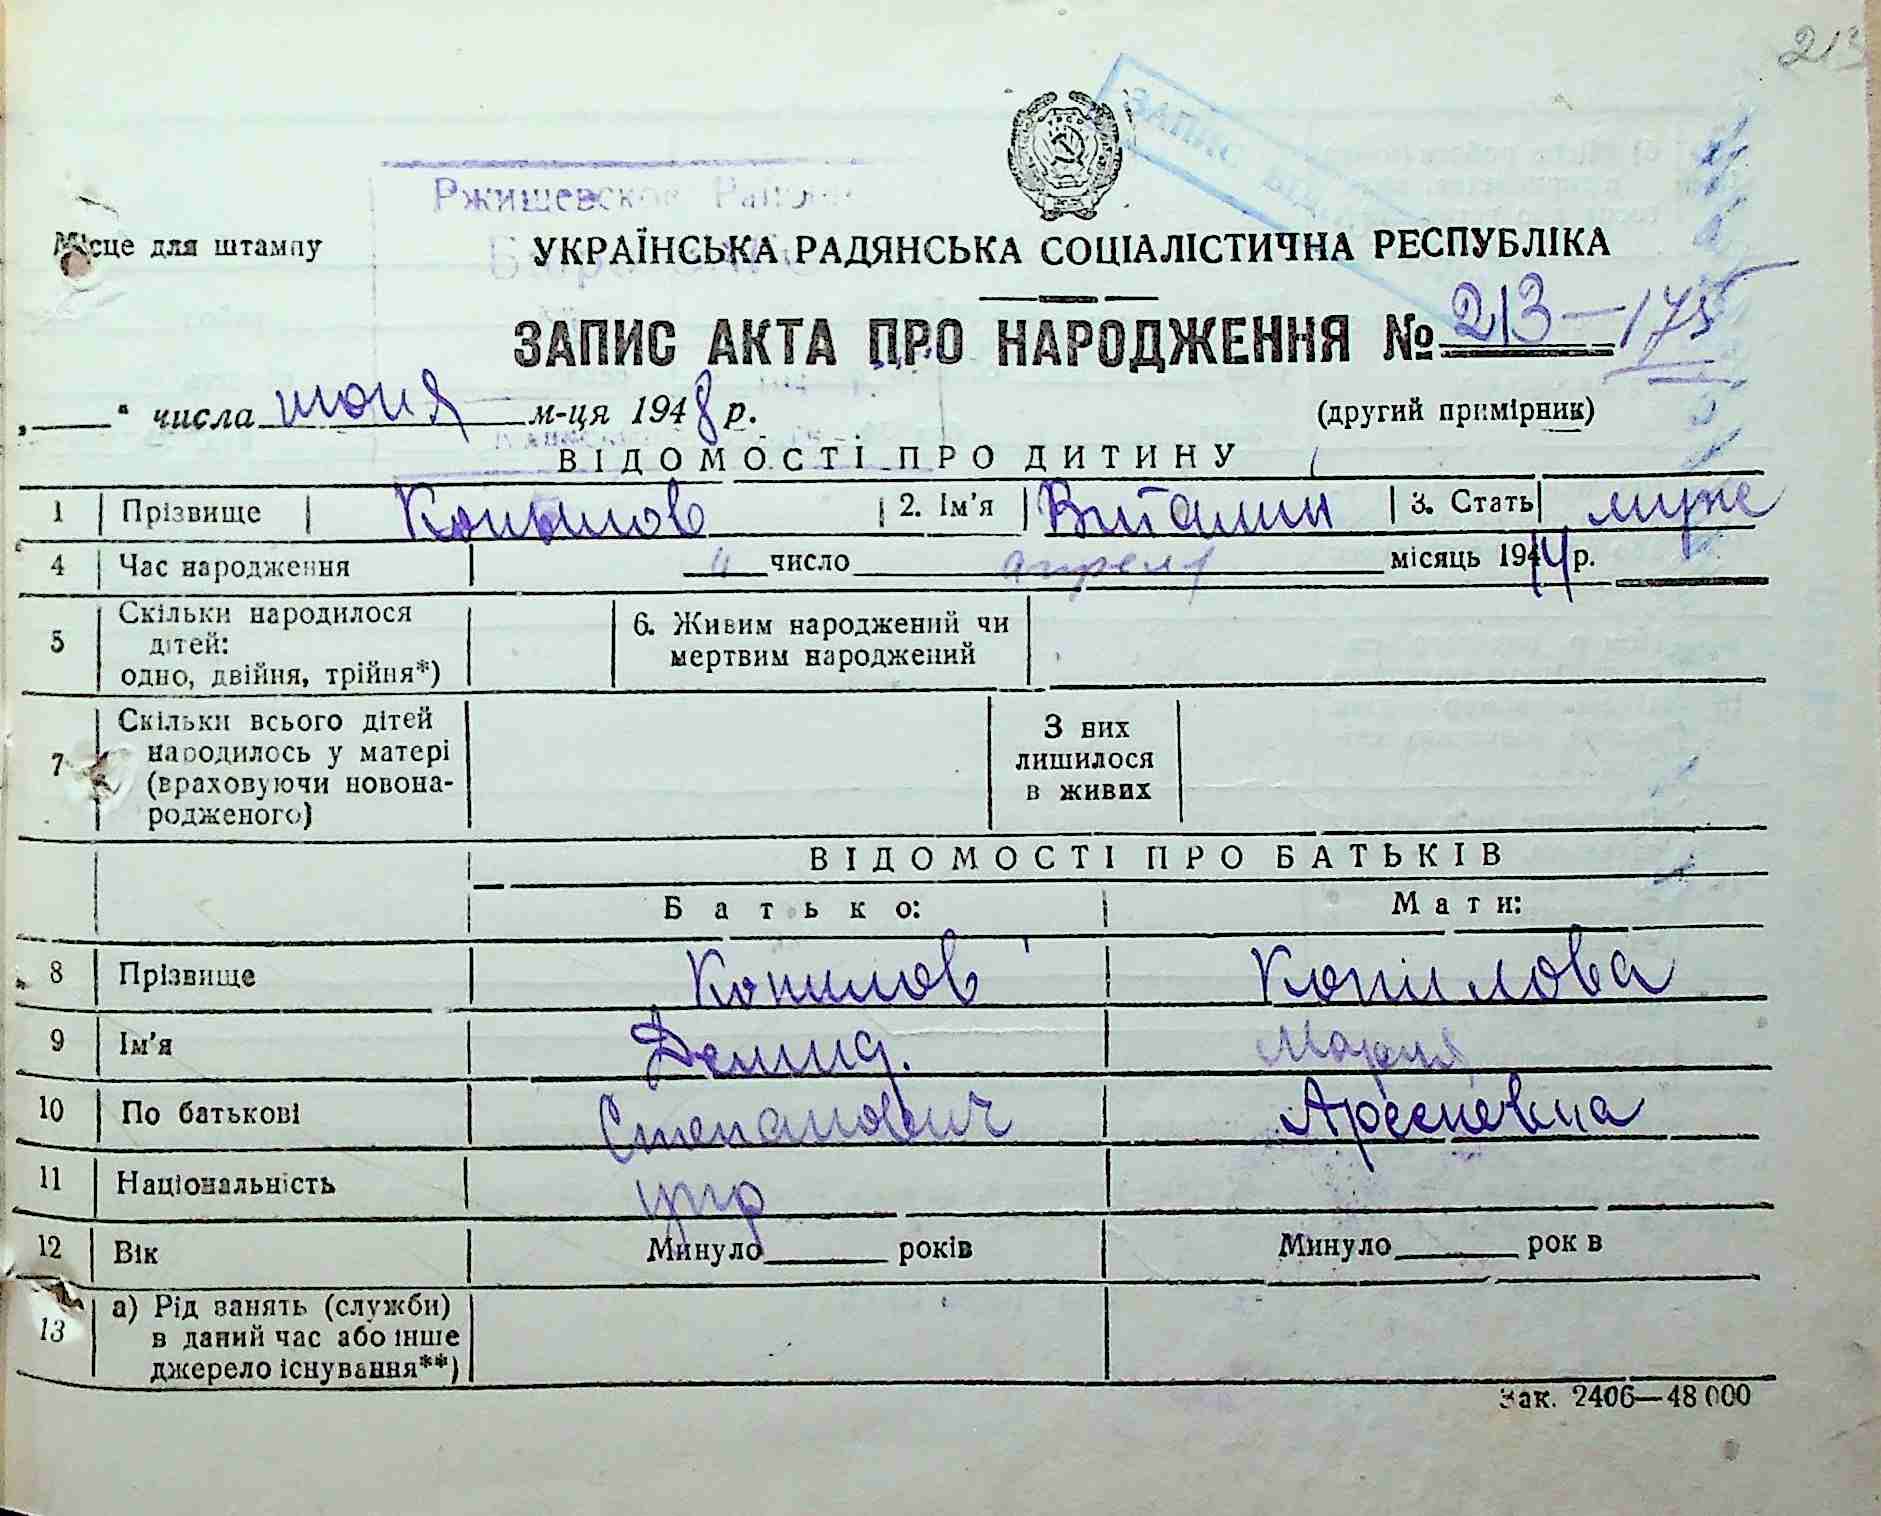 213
ЗАПИС
Ржищевское
Місце для штампу
УКРАЇНСЬКА РАДЯНСЬКА СОЦІАЛІСТИЧНА РЕСПУБЛІКА
ЗАПИС АКТА ПРО НАРОДЖЕННЯ № 213 — 175
„ " числа июня м-ця 1948 р. (другий примірник)
ВІДОМОСТІ ПРО ДИТИНУ
1 Прізвище Копылов 2. Ім'я Виталий 3. Стать муж
4 Час народження 11 число апреля місяць 1944 р.
5 Скільки народилося дітей: одно, двійня, трійня*) 6. Живим народжений чи мертвим народжений
7 Скільки всього дітей народилось у матері (враховуючи новонародженого) З них лишилося в живих
ВІДОМОСТІ ПРО БАТЬКІВ
Батько: Мати:
8 Прізвище Копилов Копилова
9 Ім'я Демид. Мария
10 По батькові Степанович Арсеневна
11 Національність укр
12 Вік Минуло років Минуло рок в
13 а) Рід занять (служби) в даний час або інше джерело існування**)
Зак. 2406—48 000